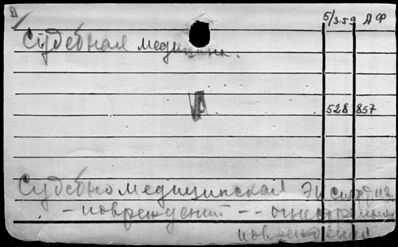 5/3.59 ДФ
Судебная медицина.
528 857
Судебномедицинская Эксперт.
- повреждений -- огнестрельн
повреждения